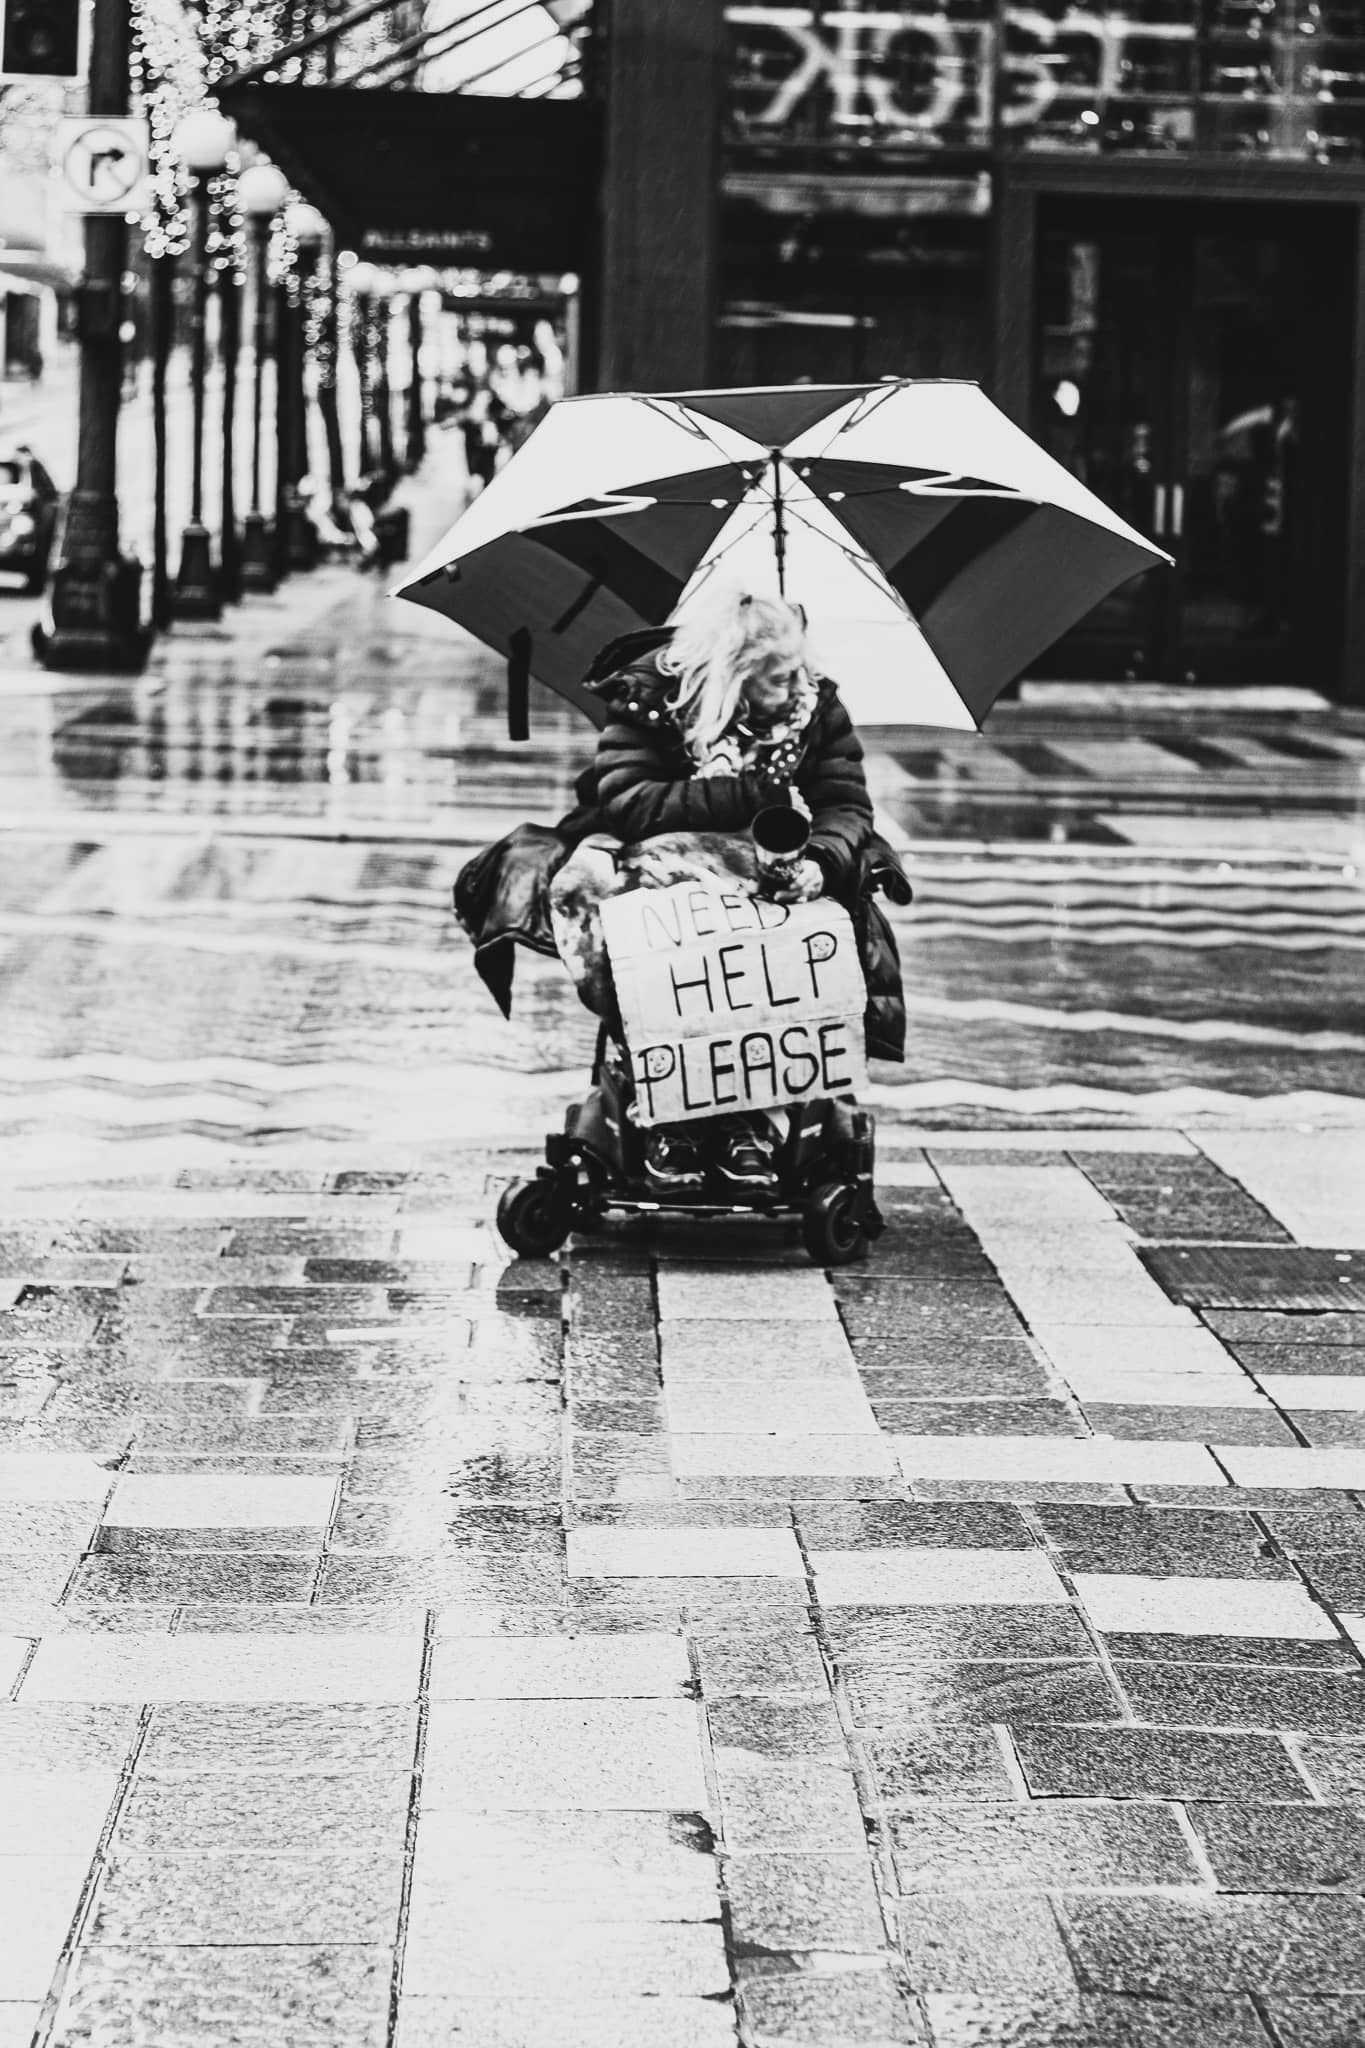 ALLSAINTS
NEED
HELP
PLEASE